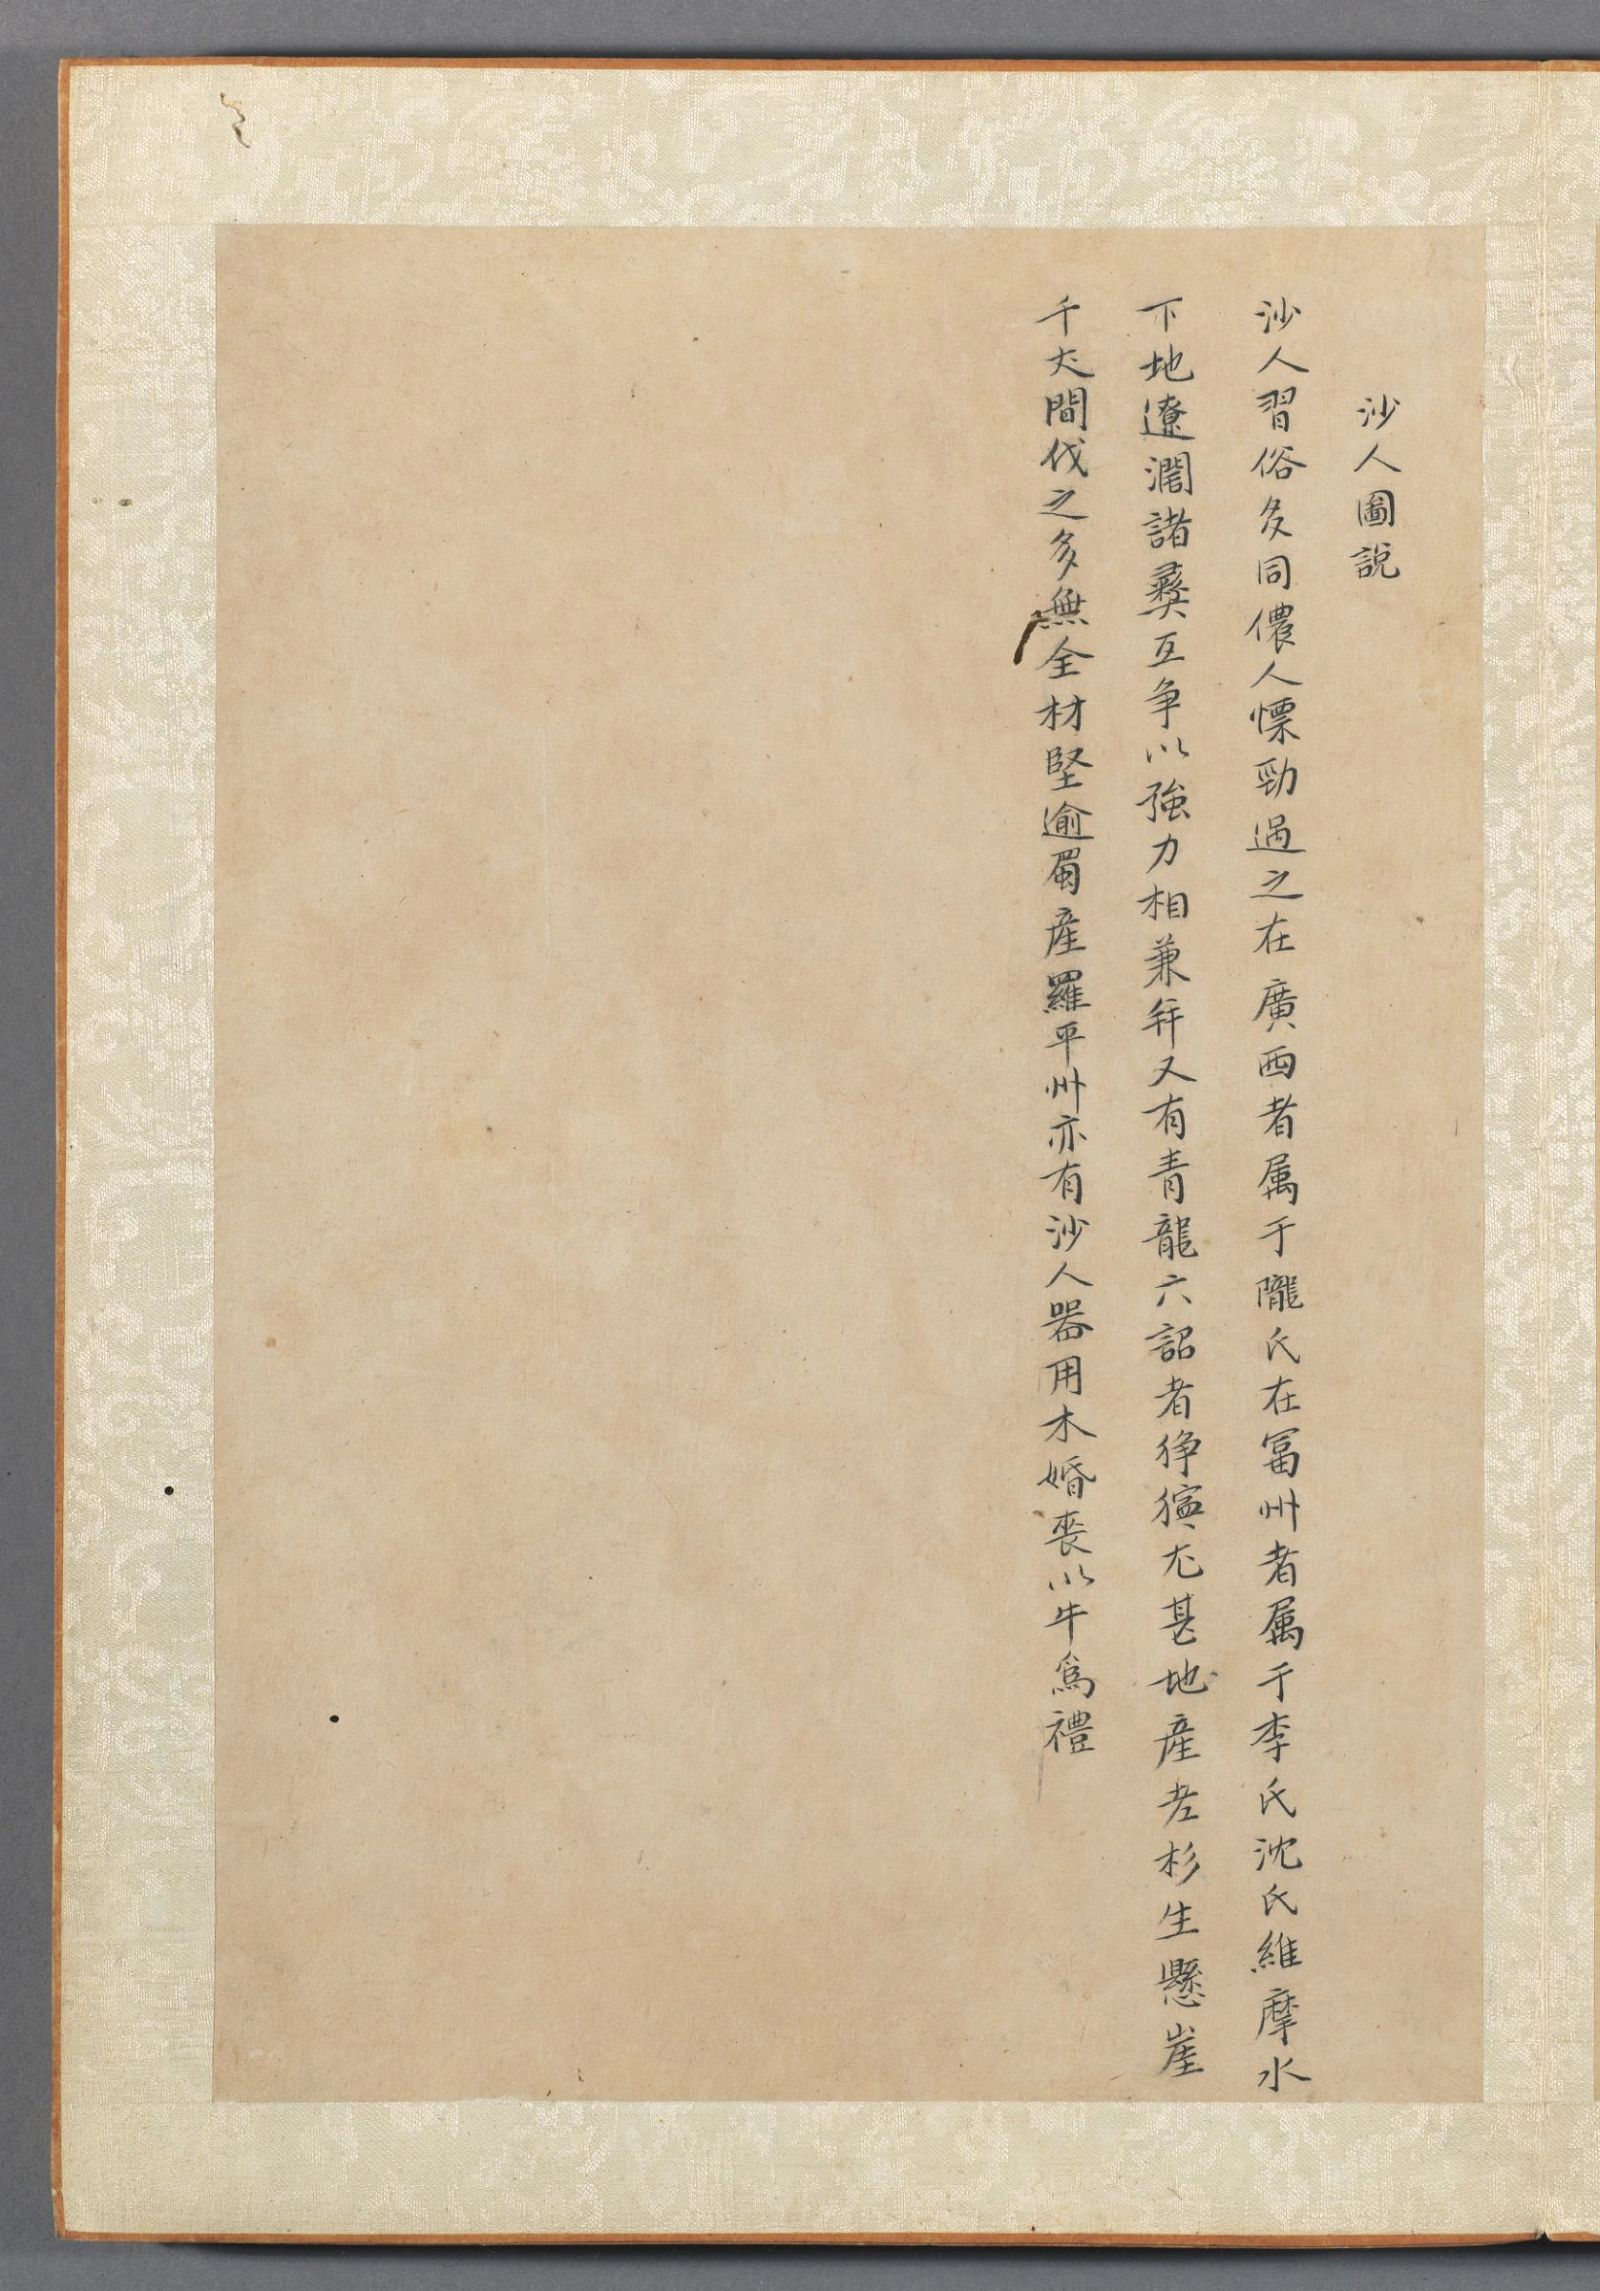 沙人圖說
沙人習俗多同儂人慓勁過之在廣西者属于隴氏在冨州者属于李氏沈氏維摩水
下地遼濶諸彝互争以強力相兼并又有青龍六詔者狰獰尤甚地産老杉生懸崖
千丈間伐之多無全材堅逾蜀産羅平州亦有沙人器用木婚喪以牛爲禮